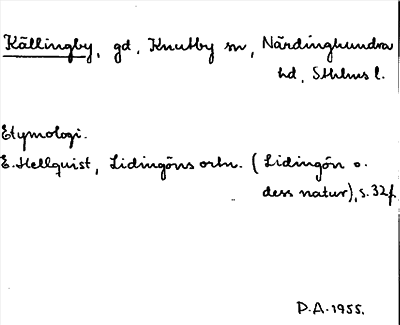 Källingby, gd, Knutby sn, Närdinghundra
hd, Sthlms l.
Etymologi.
E. Hellquist, Lidingöns ortn. (Lidingön o.
dess natur), s. 32f.
D.A. 1955.